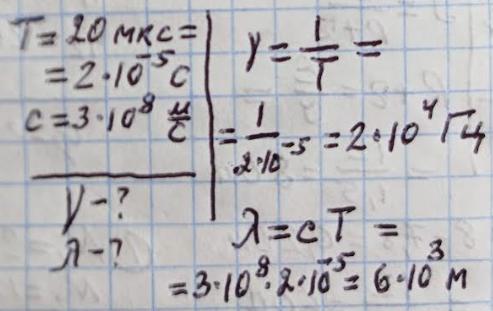 T = 20 мкс =
= 2·10⁻⁵ с
c = 3·10⁸ м/с
γ - ?
λ - ?
γ = 1/T =
= 1/2·10⁻⁵ = 2·10⁴ Гц
λ = cT =
= 3·10⁸·2·10⁻⁵ = 6·10³ м